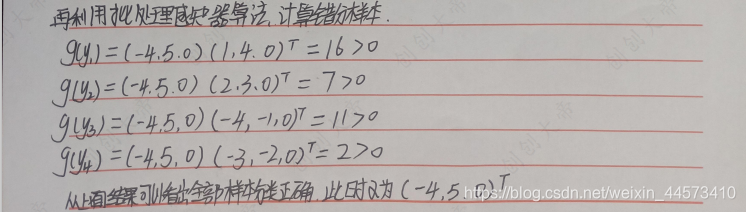 再利用批处理感知器算法,计算错分样本.
g(y₁)=(-4.5.0)(1,4.0)ᵀ=16>0
g(y₂)=(-4.5.0)(2.3.0)ᵀ=7>0
g(y₃)=(-4.5,0)(-4,-1,0)ᵀ=11>0
g(y₄)=(-4,5,0)(-3,-2,0)ᵀ=2>0
从上面结果可以看出全部样本分类正确.此时α为(-4,5.0)ᵀ
https://blog.csdn.net/weixin_44573410